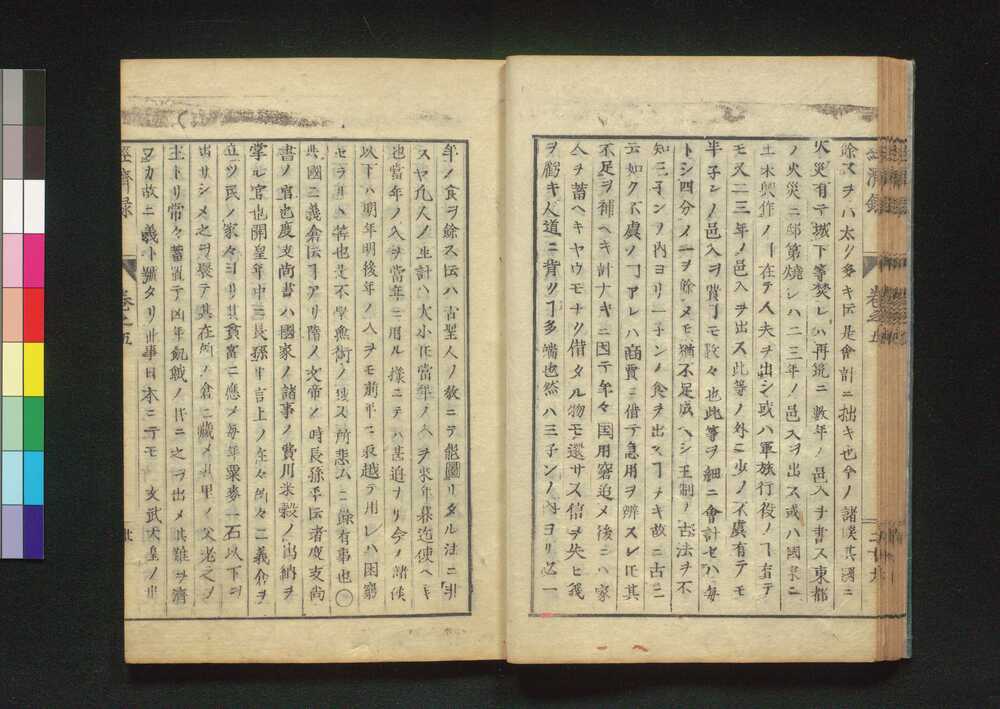 餘スヲハ太タ多キ𪜈是會計ニ拙キ也今ノ諸侯其國ニ
火災有テ城下等焚レハ再鏡ニ數年ノ邑入ヲ書ス東都
ノ火災ニ邸第燒レハ二三年ノ邑入ヲ出ス或ハ國家ニ
土木興作ノヿ在テ人夫ヲ出シ或ハ軍旅行役ノヿ有テ
モ又二三年ノ邑入ヲ出ス此等ノ外ニ少ノ不虞有テモ
半年ンノ邑入ヲ費ヿモ數々也此等ヲ細ニ會計セハ每
トシ四分ノ一ヲ餘メモ猶不足成ヘシ王制ノ古法ヲ不
知三子ンノ內ヨリ一子ンノ食ヲ出スヿナキ故ニ古ニ
云如ク不虞ノヿアレハ商賈ニ借テ急用ヲ辨スレ𪜈其
不足ヲ補ヘキ計ナキニ因テ年々国用窮迫メ後ニハ家
人ヲ蓄ヘキヤウモナク借タル物モ還サス信ヲ失ヒ義
ヲ虧キ人道ニ背クヿ多端也然ハ三子ンノ內ヨリ必一
年ノ食ヲ餘ス𪜈ハ古聖人ノ敎ニテ能圖リタル法ニ
スヤ凡人ノ生計ハ大小𪜈當年ノ入ヲ來年暮迄使ヘキ
也當年ノ入ヲ當年ニ用ル樣ニテハ甚迫ナリ今ノ諸侯
以下ハ明年明後年ノ入ヲモ前年ニ取越テ用レハ困窮
セラルヽ筈也是不學無術ノ致ス所悲ムニ餘有事也〇
異國ニ義倉𪜈ヿアリ隋ノ文帝ノ時長孫平𪜈者度支尚
書ノ官也度支尚書ハ國家ノ諸事ノ費用米穀ノ出納ヲ
掌ル官也開皇年中ニ長孫平言上ノ在々所々ニ義倉ヲ
立ツ民ノ家々ヨリ其貧富ニ應メ每年粟麥一石以下ヲ
出サシメ之ヲ聚テ其在所ノ倉ニ藏メ其里ノ父老之ノ
主トリ常々蓄置テ凶年飢饑ノ時ニ之ヲ出メ其難ヲ濟
フカ故ニ義ト號タリ此事日本ニテモ 文武天皇ノ
經濟録 卷之五